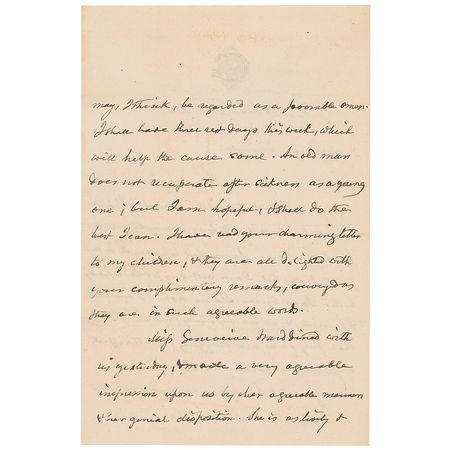 may, I think, be regarded as a favorable omen.
I shall have three rest days this week, which
will help the cause some. An old man
does not recuperate after sickness as a young
one; but I am hopeful, & shall do the
best I can. I have read your charming letter
to my children, & they are all delighted with
your complimentary remarks, conveyed as
they are in such agreeable words.
Miss Genevieve Ward dined with
us yesterday, & made a very agreeable
impression upon us by her agreeable manners
& her genial disposition. She is as lively &